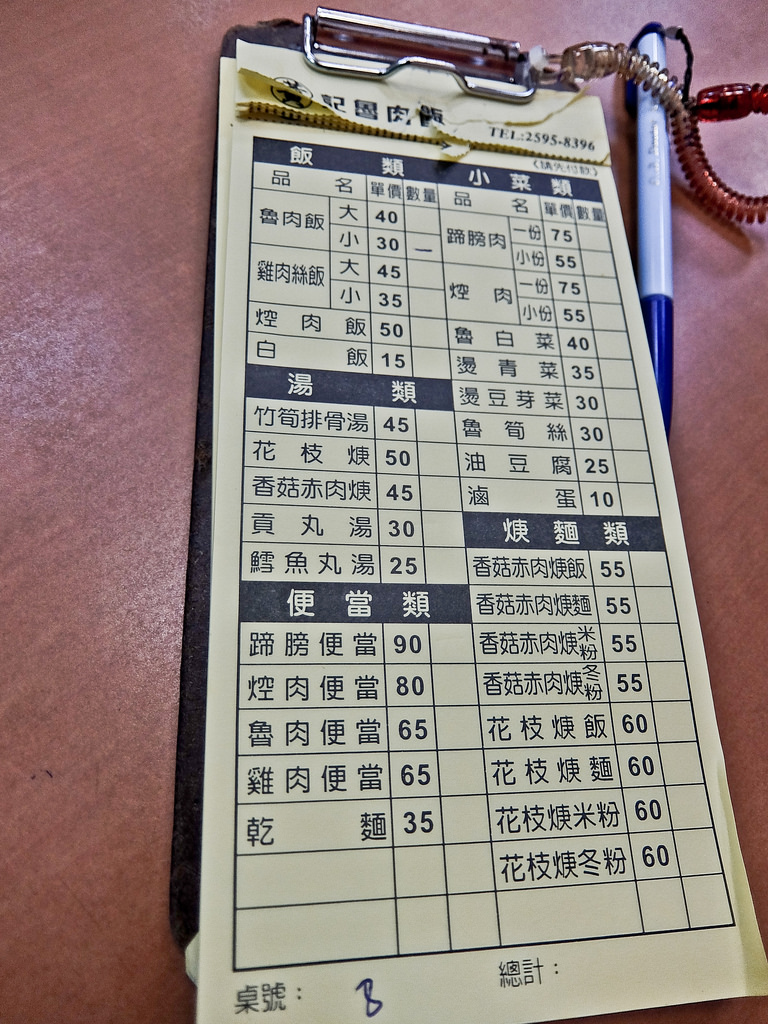 記魯肉飯
TEL:2595-8396
(請先付款)
飯類 小菜類
品名 單價 數量 品名 單價 數量
魯肉飯 大 40 蹄膀肉 一份 75
小 30 一 小份 55
雞肉絲飯 大 45 焢肉 一份 75
小 35 小份 55
焢肉飯 50 魯白菜 40
白飯 15 燙青菜 35
湯類 燙豆芽菜 30
竹筍排骨湯 45 魯筍絲 30
花枝焿 50 油豆腐 25
香菇赤肉焿 45 滷蛋 10
貢丸湯 30 焿麵類
鱈魚丸湯 25 香菇赤肉焿飯 55
便當類 香菇赤肉焿麵 55
蹄膀便當 90 香菇赤肉焿米粉 55
焢肉便當 80 香菇赤肉焿冬粉 55
魯肉便當 65 花枝焿飯 60
雞肉便當 65 花枝焿麵 60
乾麵 35 花枝焿米粉 60
花枝焿冬粉 60
桌號： 8 總計：